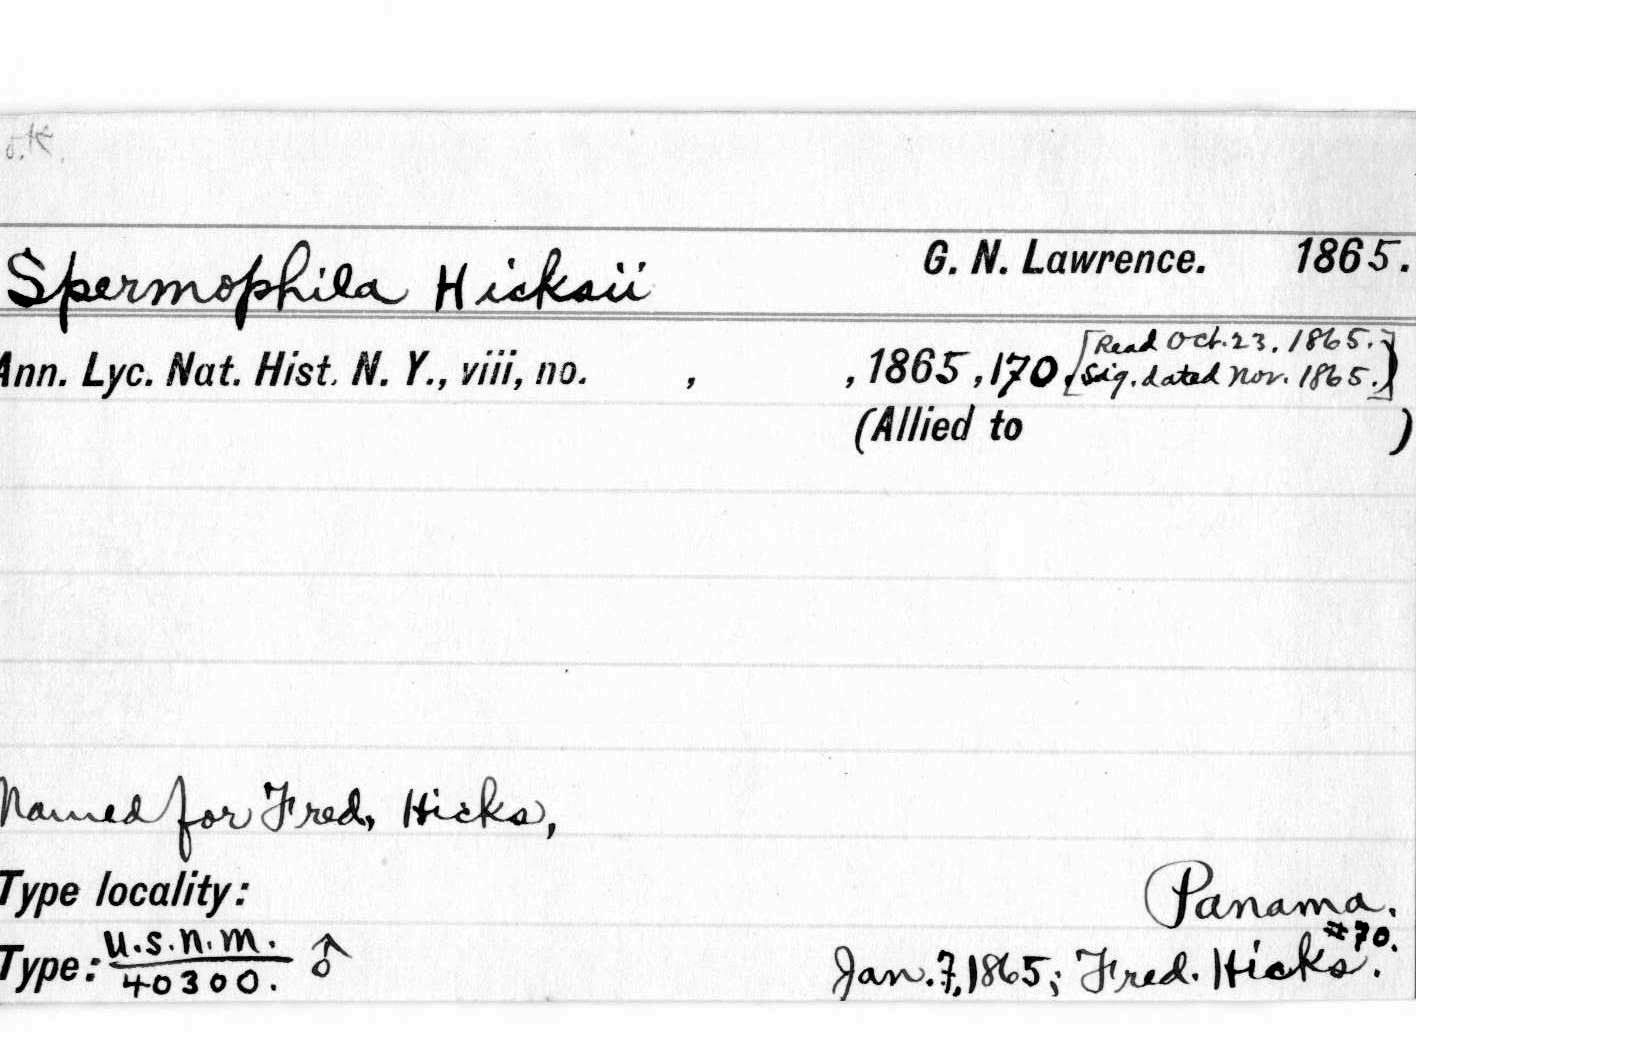 O.K.
Spermophila Hicksii G. N. Lawrence. 1865.
Ann. Lyc. Nat. Hist. N. Y., viii, no. , , 1865, 170. [Read Oct. 23, 1865.
Sig. dated Nov. 1865.)]
(Allied to )
Named for Fred, Hicks,
Type locality: Panama.
#70.
Type: U.S.N.M. ♂ Jan. 7, 1865; Fred. Hicks.
40300.